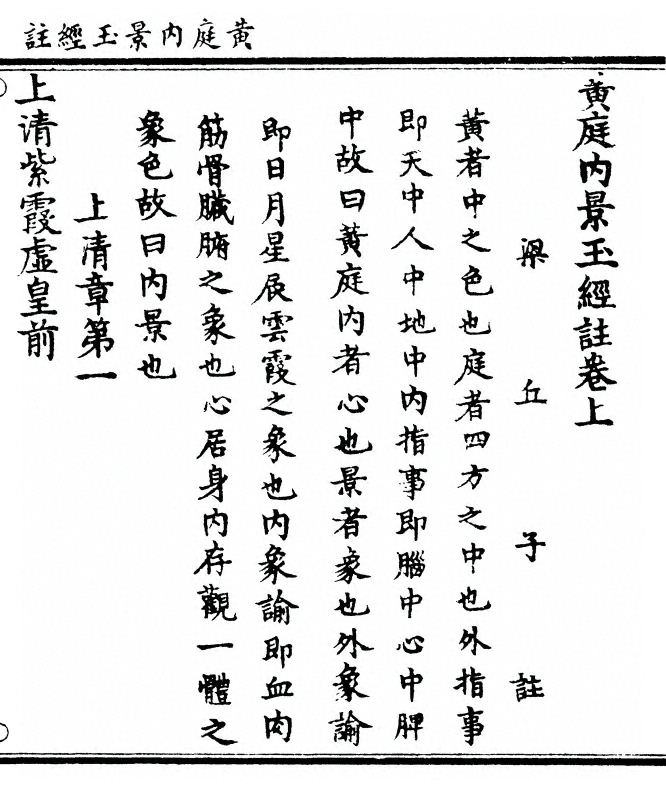 黃庭內景玉經註
黃庭內景玉經註卷上
梁丘子註
黃者中之色也庭者四方之中也外指事
即天中人中地中內指事即腦中心中脾
中故曰黃庭內者心也景者象也外象諭
即日月星辰雲霞之象也內象諭即血肉
筋骨臟腑之象也心居身內存觀一體之
象色故曰內景也
上清章第一
上清紫霞虛皇前